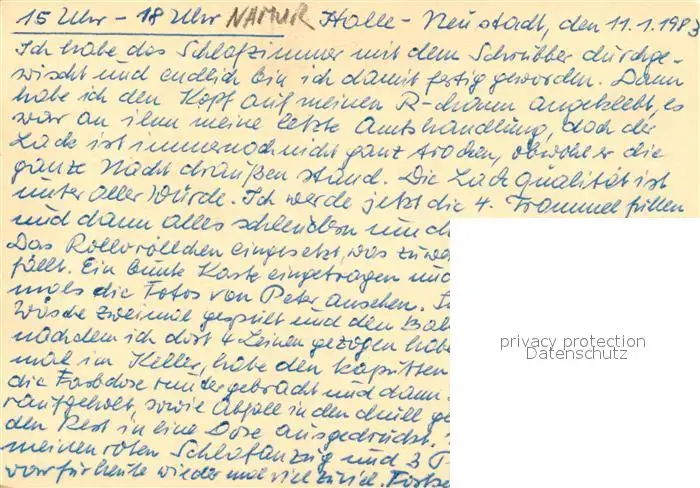 15 Uhr - 18 Uhr NAMUR Halle - Neustadt, den 11.1.1983
Ich habe das Schlafzimmer mit dem Schrubber durchge-
wischt und endlich bin ich damit fertig geworden. Dann
habe ich den Kopf auf meinen angeklebt, es
war an ihm meine letzte Amtshandlung, doch der
Lack ist immernoch nicht ganz trocken, obwohl er die
ganze Nacht draußen stand. Die Lackqualität ist
unter aller Würde. Ich werde jetzt die 4. Trommel füllen
und dann alles schleudern und
Das Rollröllchen eingesetzt, was
fällt. Ein bunte Karte eingetragen und
mals die Fotos von Peter ansehen.
Wäsche zweimal gespült und den
nachdem ich dort 4 Leinen gezogen habe
mal im Keller, habe den kaputten
die Farbdose runtergebracht und dann
raufgeholt, sowie Abfälle in den Müll
den Rest in eine Dose ausgedrückt.
meinen roten Schlafanzug und 3
war für heute wieder mal viel zuviel.
privacy protection
Datenschutz